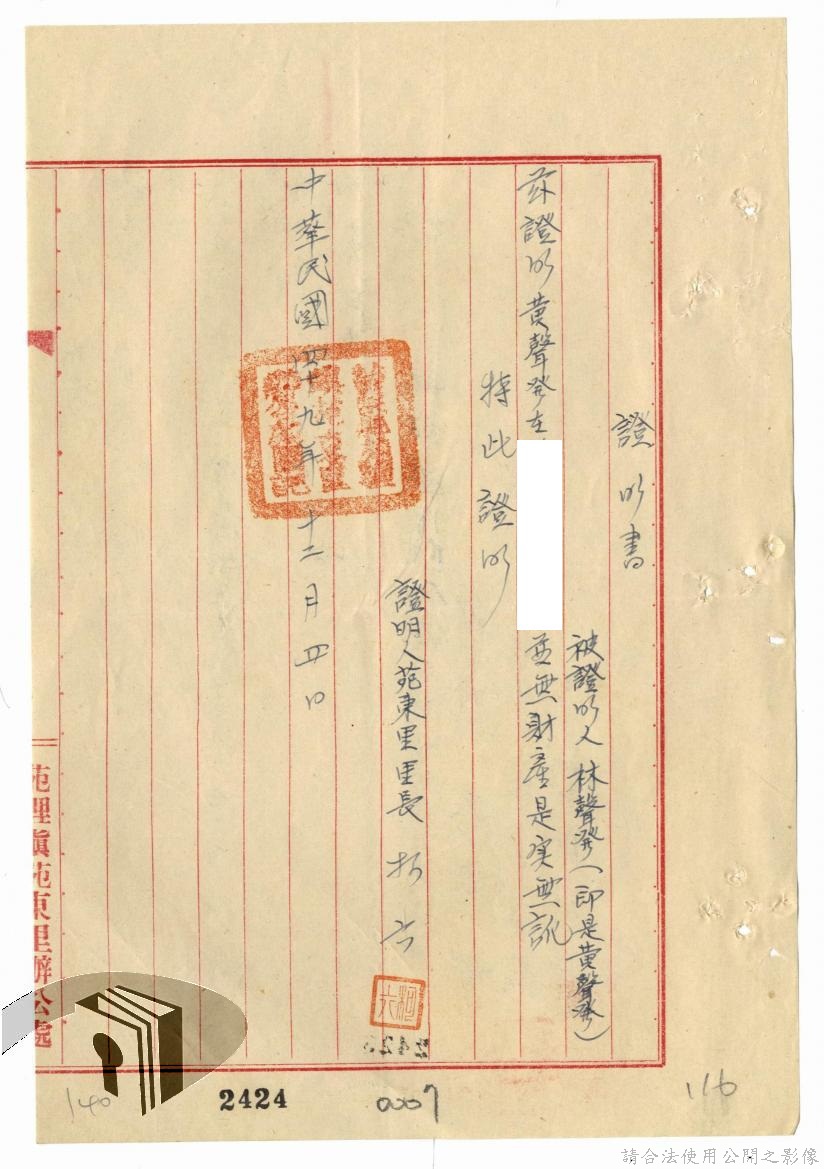 證明書
被證明人 林聲發(即是黃聲發)
茲證明黃聲發在
並無財產是实無訛
特此證明
證明人苑東里里長 柯六
中華民國四十九年十二月四日
苑裡鎮苑東里辦公處
140
2424
0007
116
請合法使用公開之影像